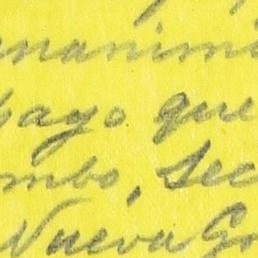 nanimi
pago que
mbo, Sec
Nueva Go